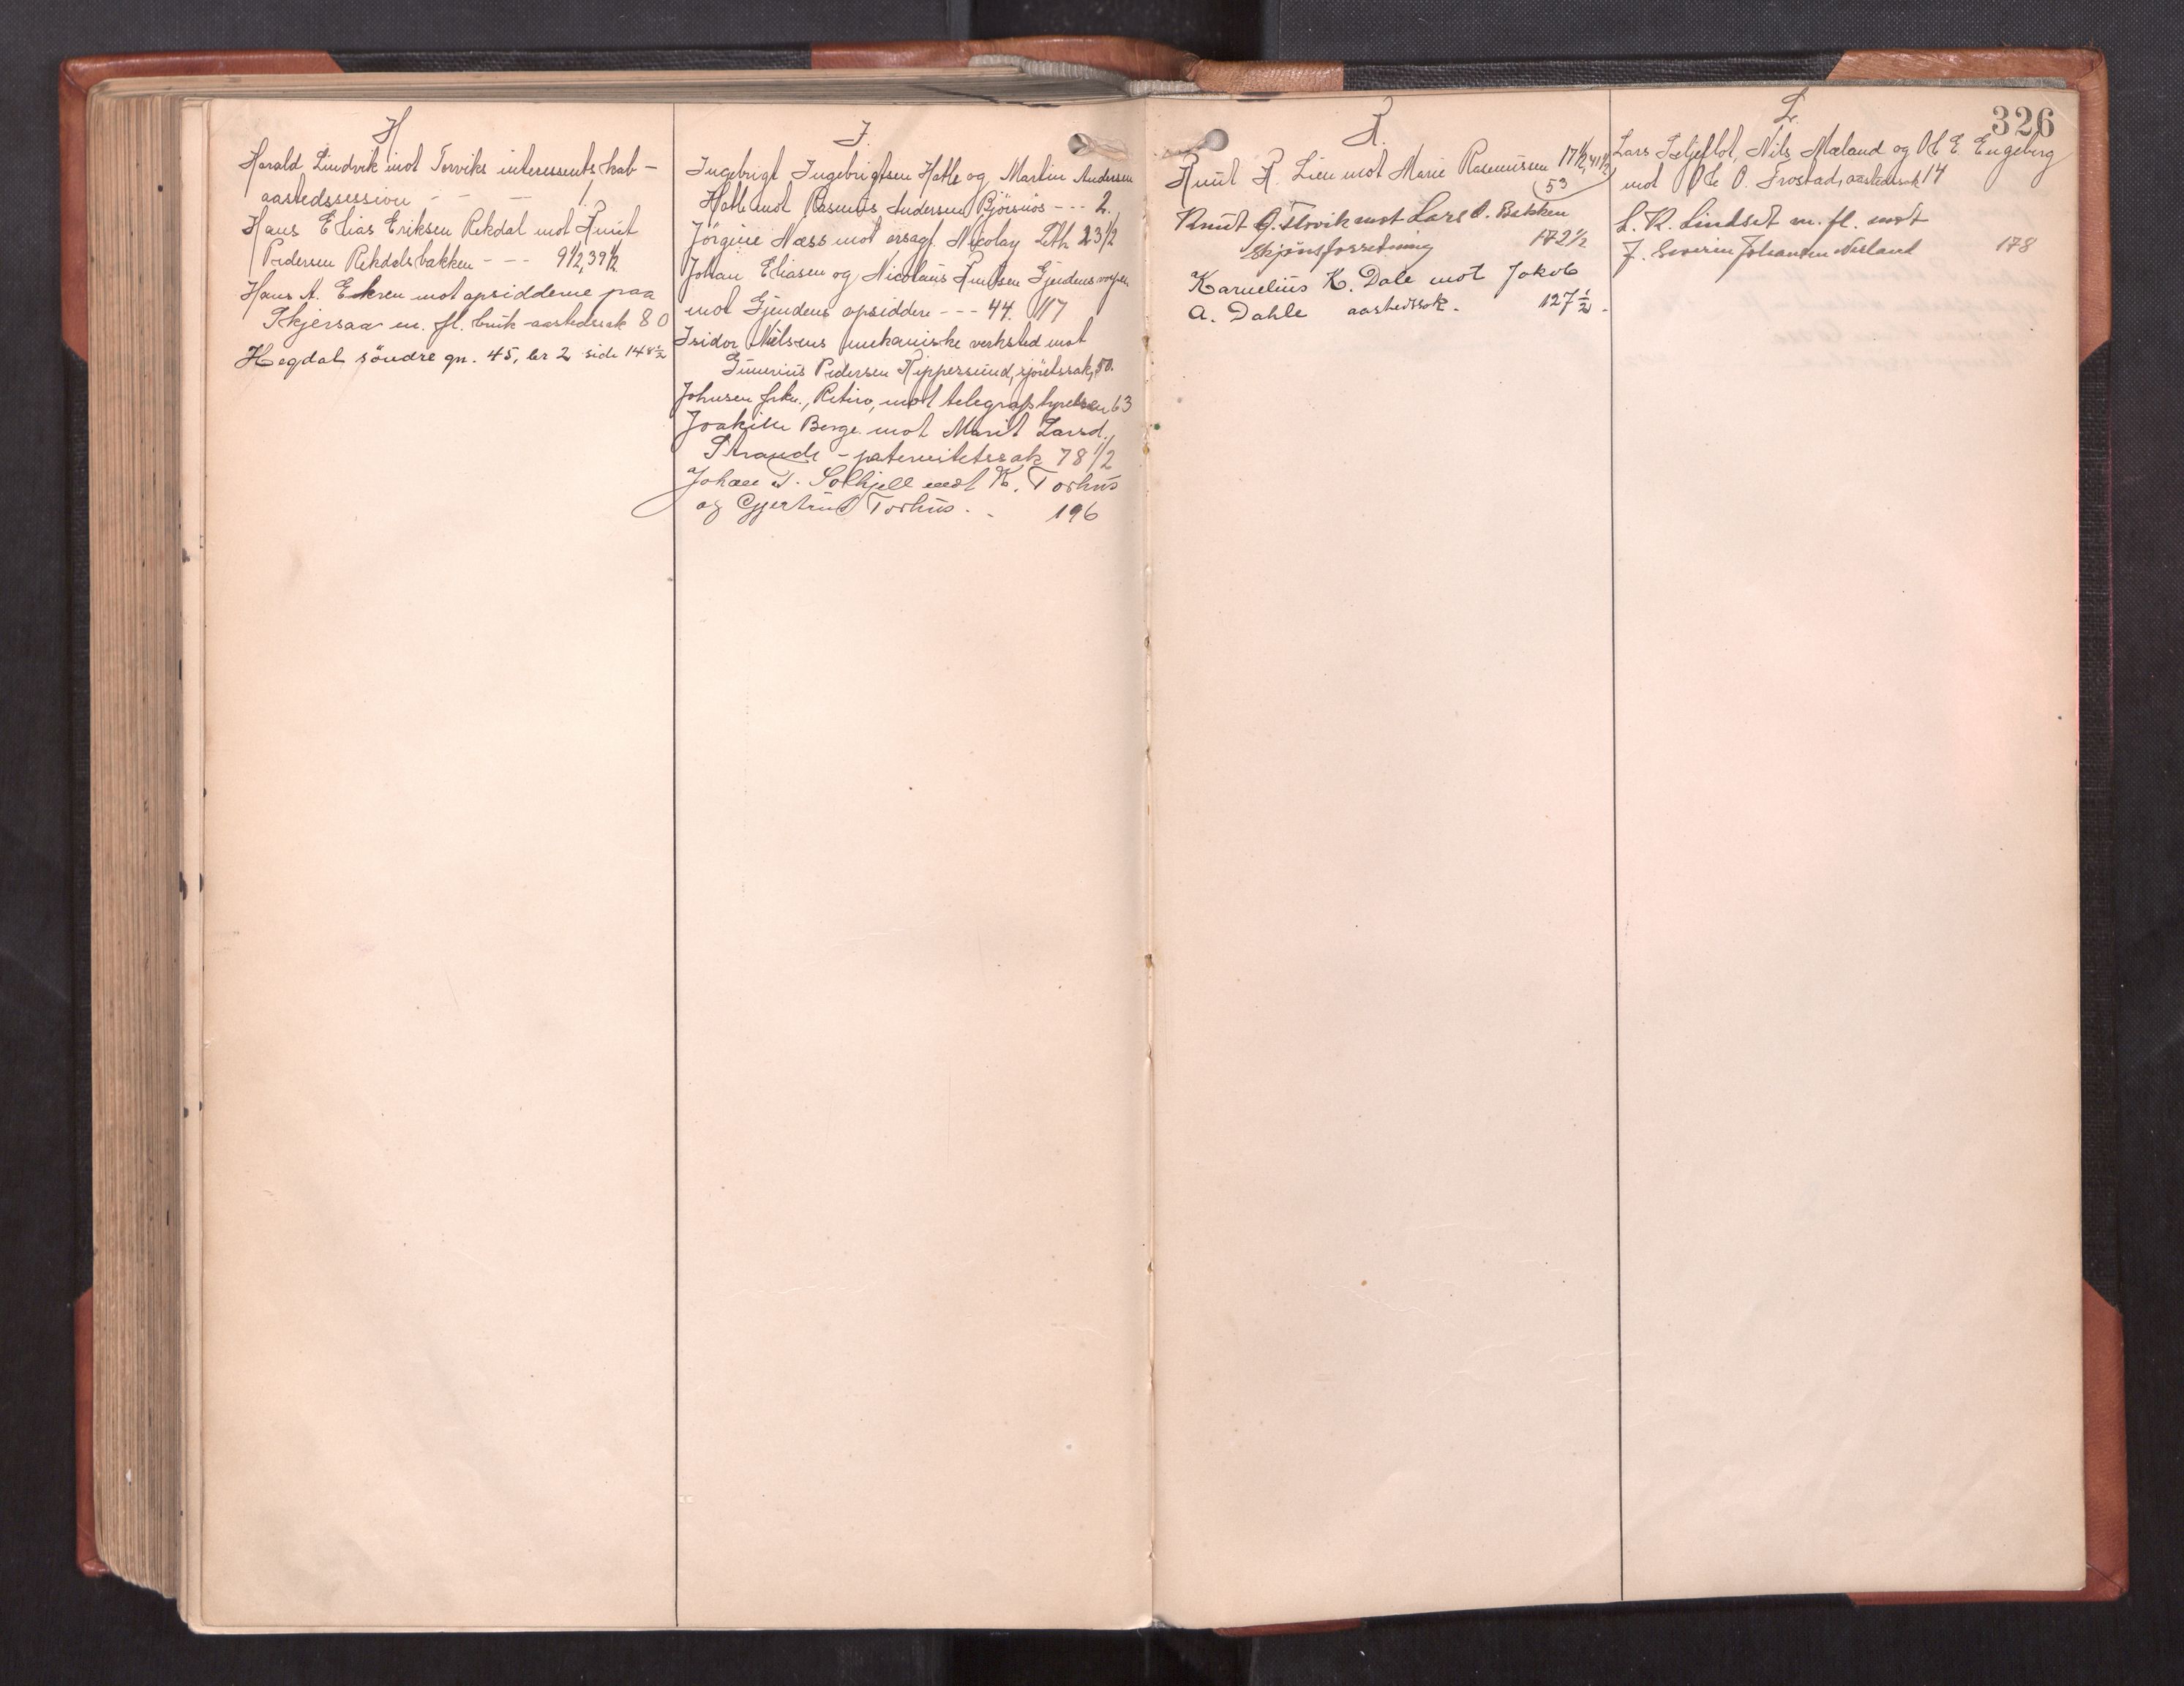 H
Harald Lindvik mot Torviks interessentskab -
aastedssession - - - 1.
Hans Elias Eriksen Rekdal mot Knut
Pedersen Rekdalsbakken - - - 9½, 39½
Hans A. Ekren mot opsidderne paa
Skjersaa m. fl. bruk - aastedssak 80
Hagdal söndre gn. 45, br 2 side 148½
J.
Ingebrigt Ingebrigtsen Hatle og Martin Andersen
Hatle mot Rasmus Andersen Björsnös - - - 2.
Jörgine Næss mot orsagf. Nicolay Leth 23½
Johan Eliasen og Nicolaus Knutsen Gjendems
mot Gjendems opsiddere - - - 44. 117
Isidor Nilsens mekaniske verksted mot
Gunerius Pedersen Kippersund, sjöretssak, 50.
Johnsen frk., Retiro, mot telegrafstyrelsen 63
Joakim Berge mot Marit Larsd.
Strande - paternitetssak 78½
Johan T. Solkjell mot K. Torhus
og Gjertrud Torhus. . 196
K.
Knut K. Lien mot Marie Rasmussen 17½, 41½
53
Knut O. Flovik mot Lars O. Bakken
Skjönsforretning 172½
Karnelius K. Dale mot Jakob
A. Dahle aastedssak. 127½.
L.
326
Lars Teljeflot, Nils Mæland og Ole E. Engeberg
mot Ole O. Frostad, aastedssak 14
L. K. Lindset m. fl. mot
J. Severin Johansen Næsland 178